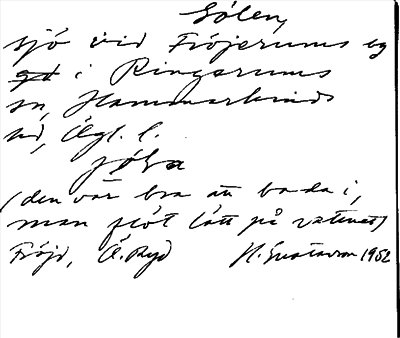 Sölen,
sjö vid Fröjerums eg
gd i Ringarums
sn, Hammarkinds
hd, Ögl. l.
(den var bra att bada i,
man flöt lätt på vattnet)
Fröjd, Ö. Ryd H. Gustavson 1952